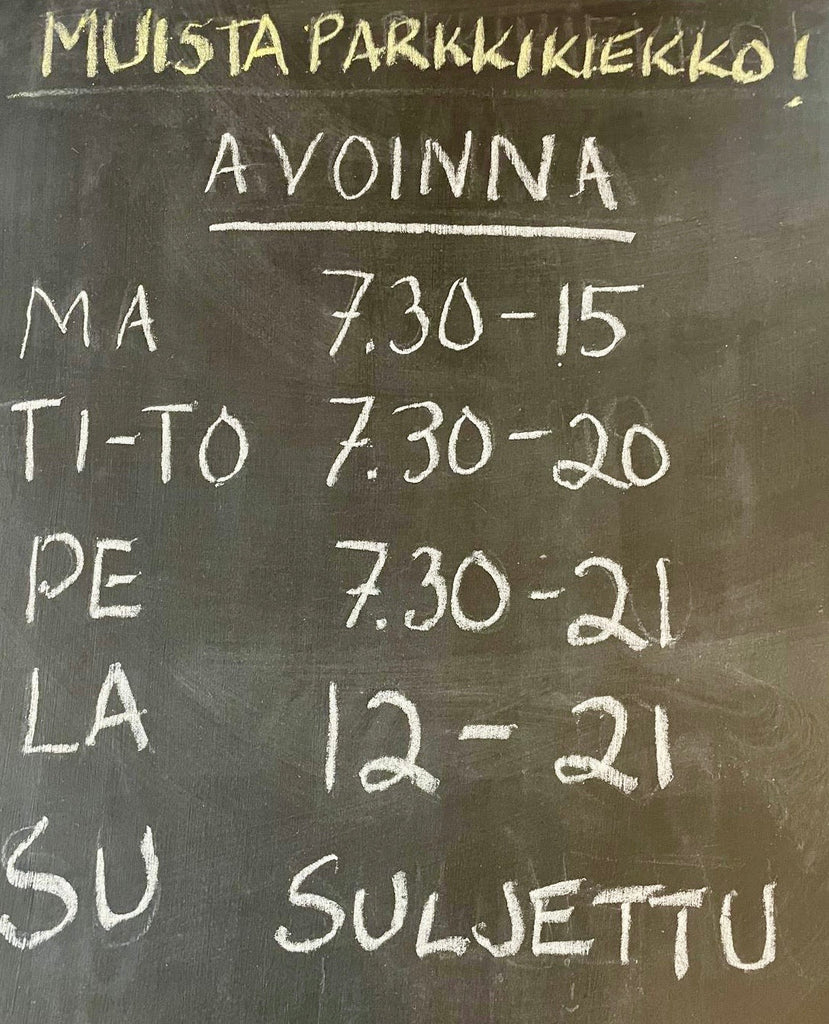 MUISTA PARKKIKIEKKO!
AVOINNA
MA 7.30-15
TI-TO 7.30-20
PE 7.30-21
LA 12-21
SU SULJETTU